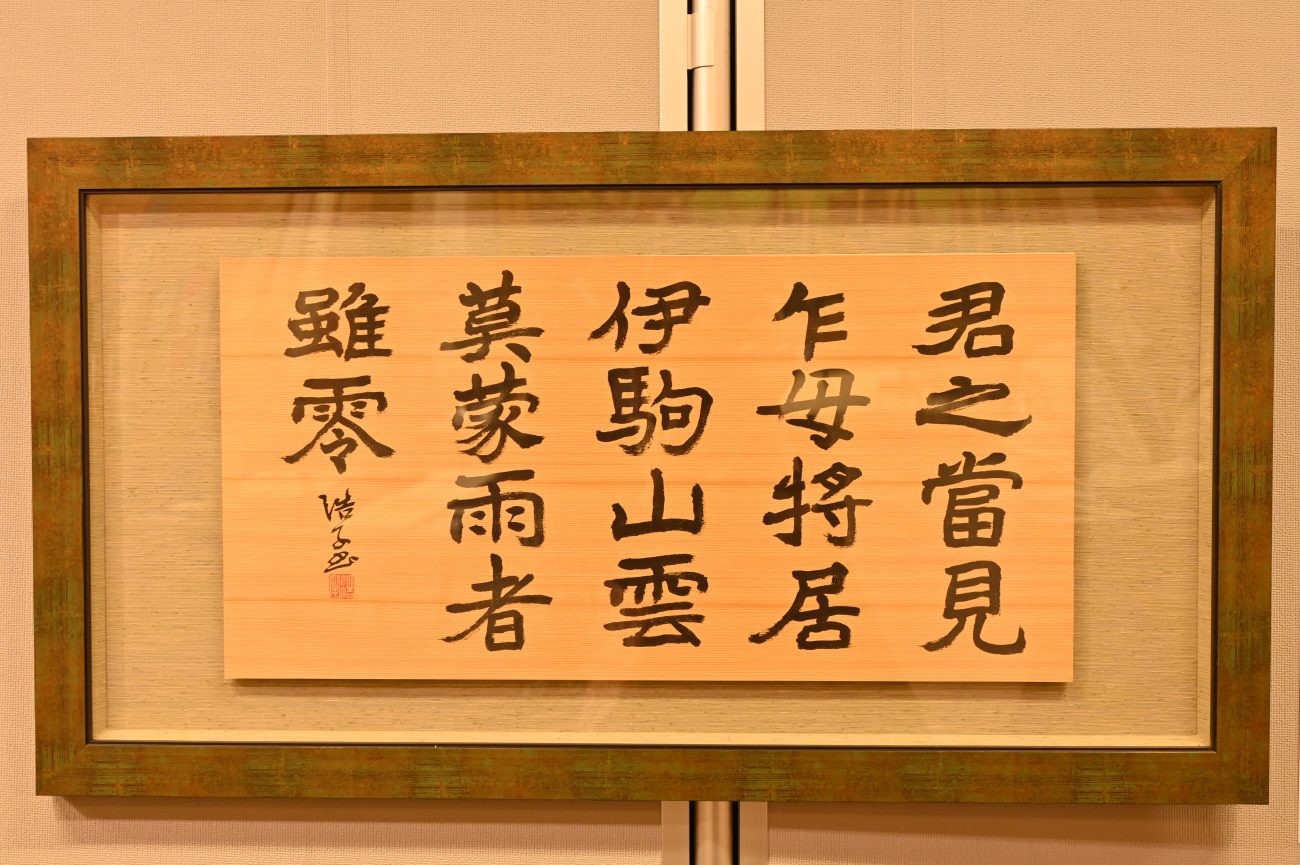 君之當見
乍毋將居
伊駒山雲
莫蒙雨者
雖零
浩子書